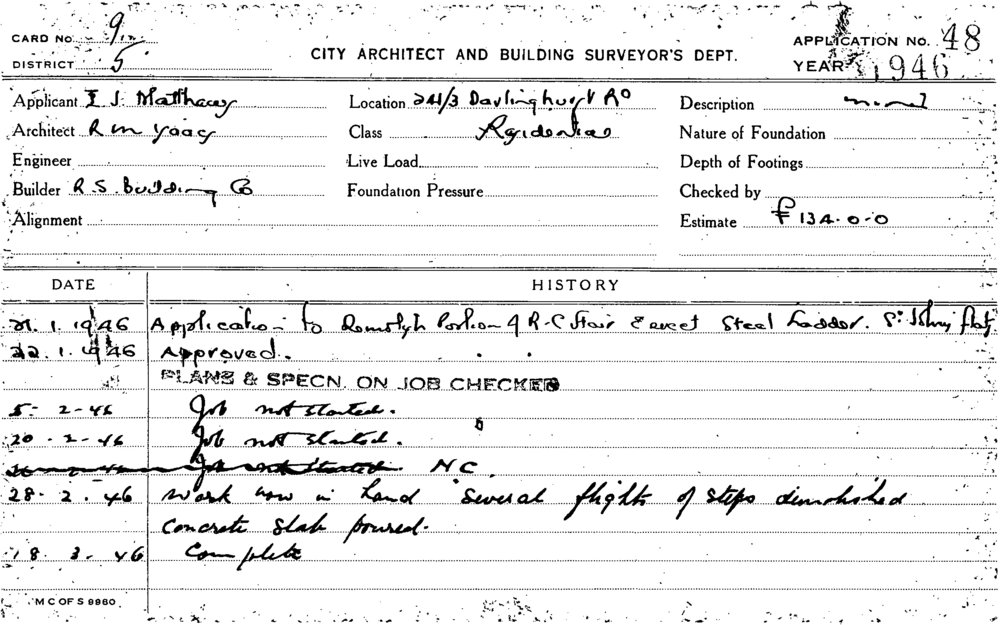 CARD No. 9
DISTRICT 5
CITY ARCHITECT AND BUILDING SURVEYOR'S DEPT.
APPLICATION No. 48
YEAR 1946
Applicant I J. Matthews Location 241/3 Darlinghurst Rd Description
Architect R M Class Residential Nature of Foundation
Engineer Live Load Depth of Footings
Builder R. S. Building Co Foundation Pressure Checked by
Alignment Estimate £ 134.0.0
DATE HISTORY
21. 1. 1946 Application to Demolish Portion of R.C Stair & erect Steel Ladder. St Johns flats
22. 1. 1946 Approved.
PLANS & SPECN. ON JOB CHECKED
5- 2-46 Job not started.
20 . 2-46 Job not started.
Job not started. NC.
28. 2. 46 Work now in hand several flights of steps demolished
concrete slab poured.
18. 3. 46 Complete
M C OF S 9960